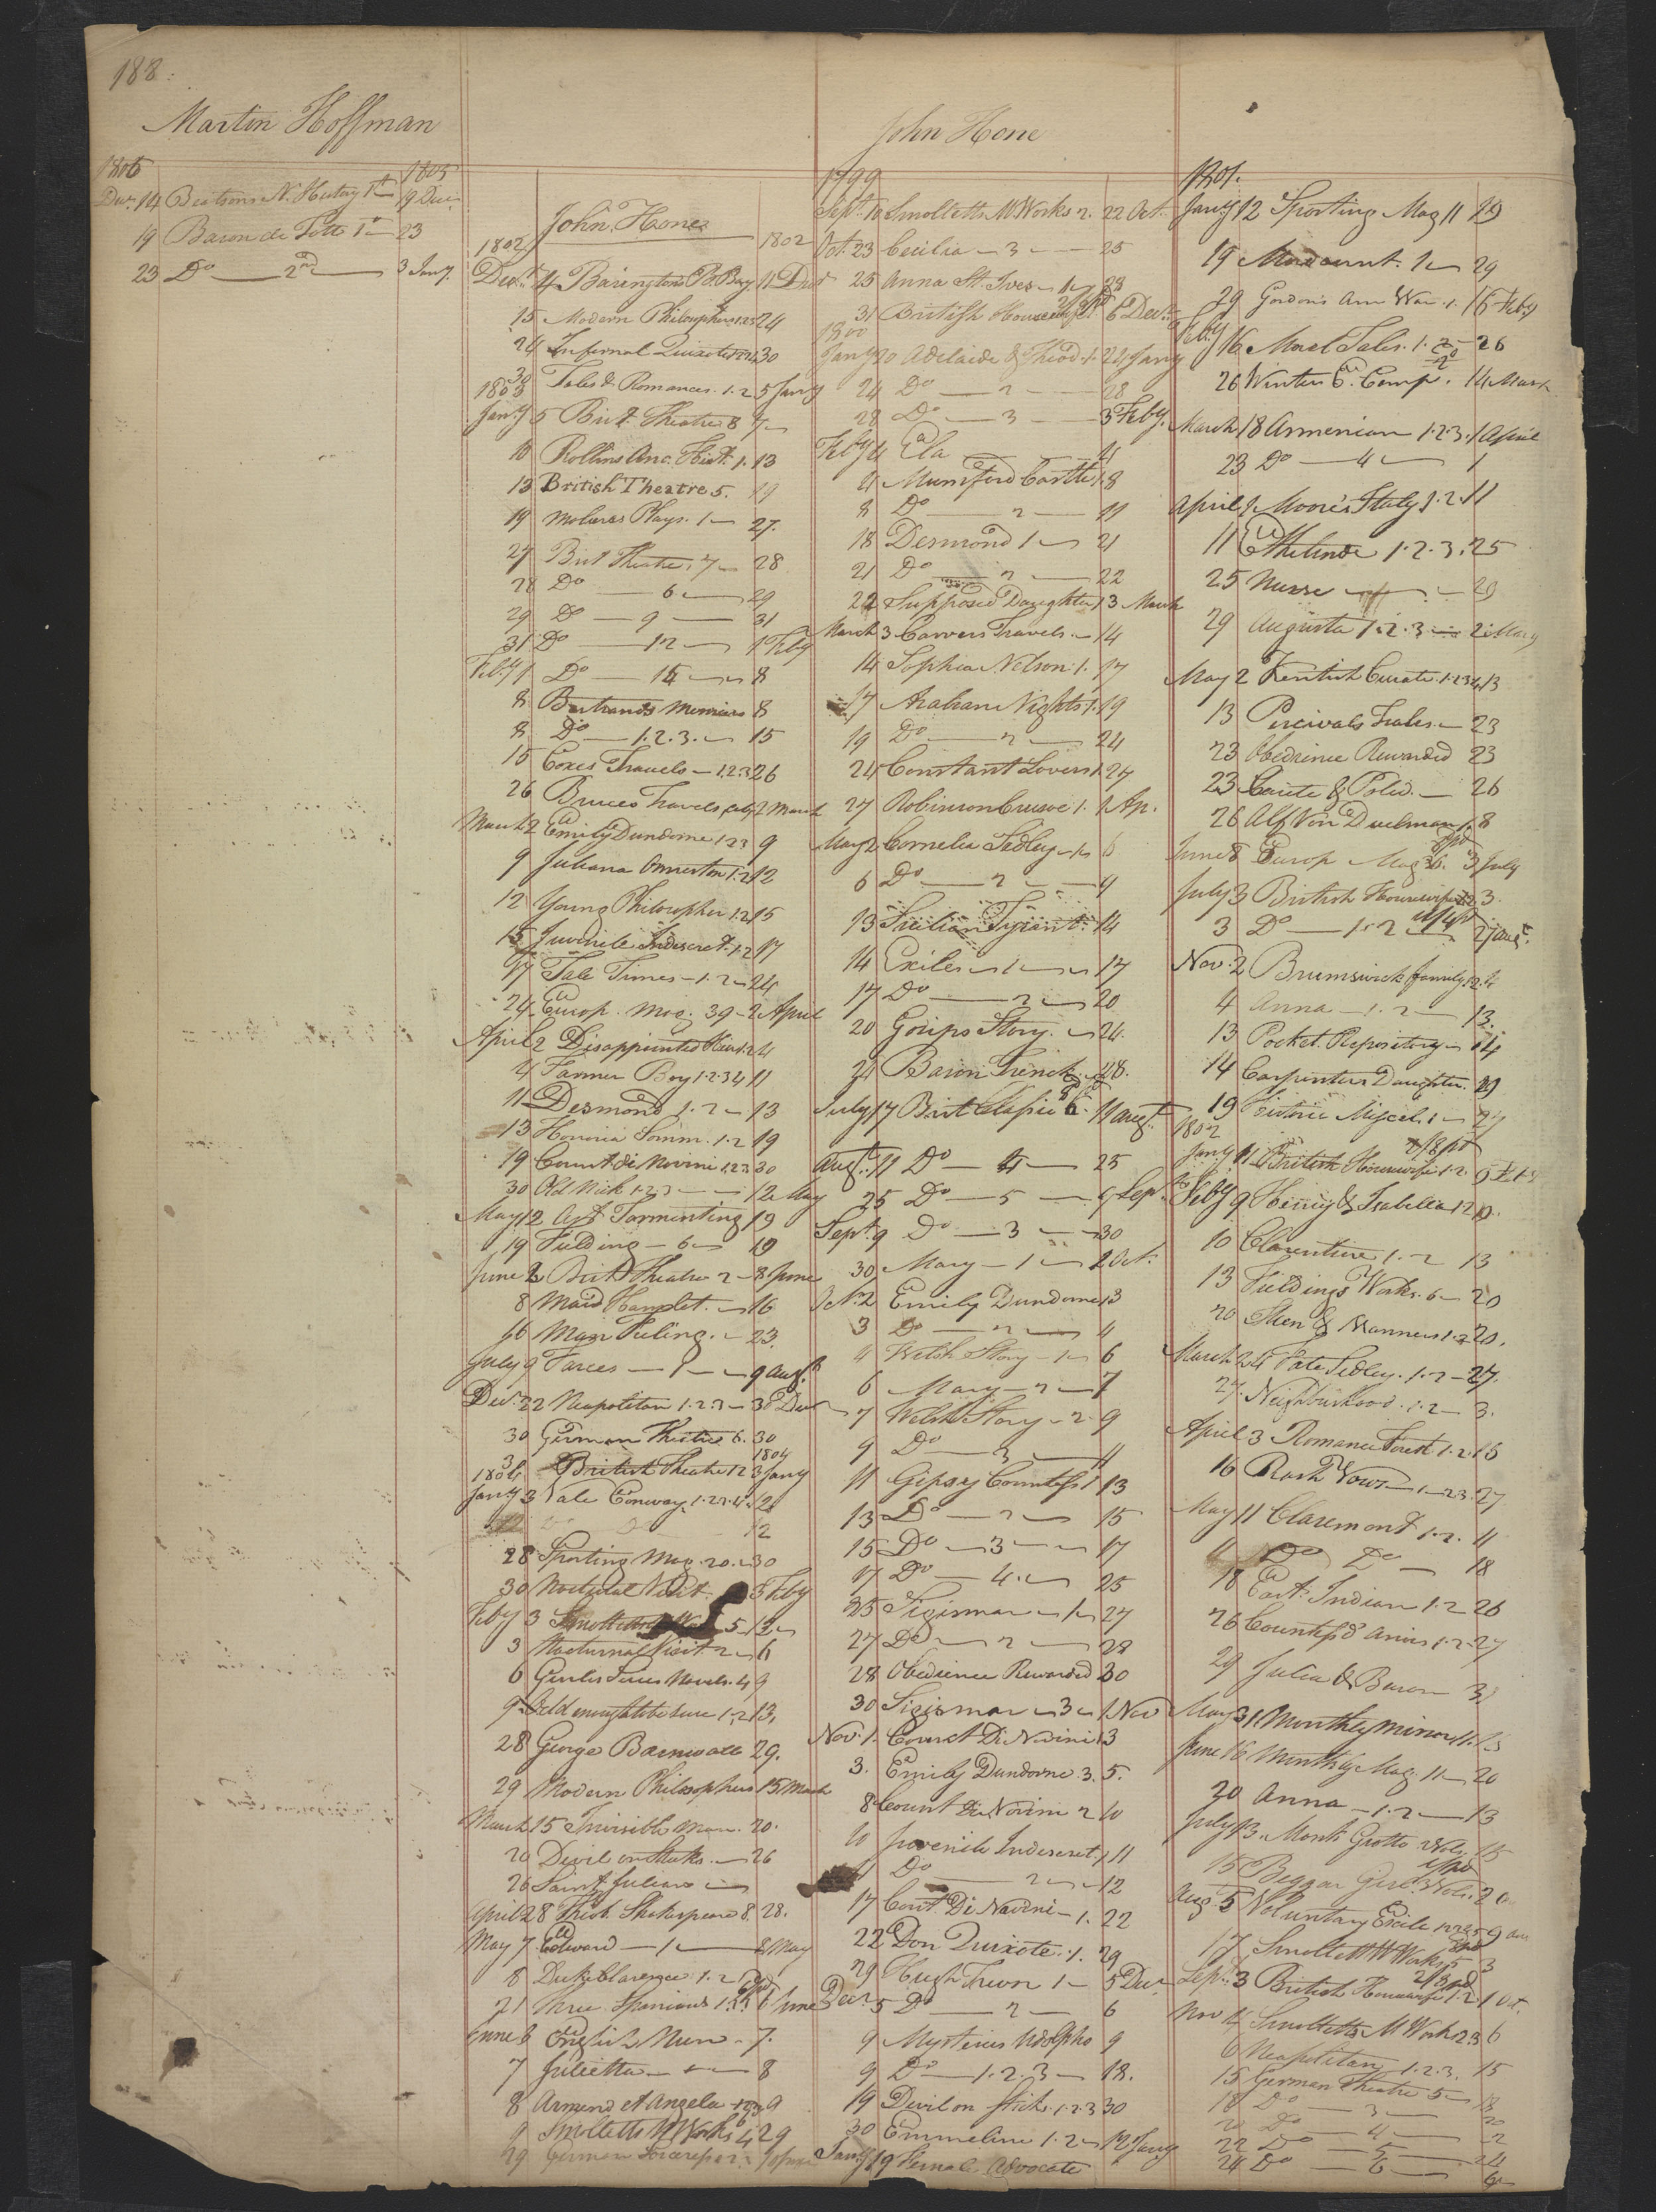 188.
Martin Hoffman
1805 1805
Decr. 14 Beatsons N. History 1st 19 Decr
19 Baron de Tott 1st 23
23 Do 2nd 3 Jany
John Hone
1802 1802
Decr. 4 Barington's B. Bay 11 Decr
15 Modern Philosophers 1.2.3 24
24 Infernal Quixote 30
30 Tales & Romances. 1.2. 5 Jany
1803
Jany 5 Brit. Theatre 8 7
10 Rollins Anc. Hist. 1. 13
13 British Theatre 5. 19
19 Plays. 1 27.
27 Brit Theatre. 7 28
28 Do 6 29
29 Do 9 31
31 Do 12 1 Feby
Feby 1 Do 14 8
8 Bertrands Memoirs 8
8 Do 1.2.3. 15
15 Coxes Travels 1.2.3 26
26 Bruces Travels 2 March
March 2 Emily Dundorne 1 2 3 9
9 Juliana Ormeston 1.2 12
12 Young Philosopher 1.2 15
15 Juvenile Indiscret. 1.2 17
17 Tale Times 1.2 24
24 Europ. Mag. 39 2 April
April 2 Disappointed Heir 1.2 4
4 Farmer Boy 1.2.3 4 11
11 Desmond 1.2 13
13 Honoria Somm. 1.2 19
19 Count di Novini 1.2.3 30
30 Old Nick 1.2.3 12 May
May 12 Art Tormenting 19
19 Fielding 6 19
June 2 Brit Theatre 2 8 June
8 Maid Hamlet. 16
16 Man Feeling. 23.
July 9 Farces 1 9 Augt
Decr. 22 Neapolitan 1.2.3 30 Decr
30 German Theatre 6. 30
1804
3 British Theatre 12 3 Jany
1804
Jany 3 Vale Conway 1.2.3.4. 12
12 Do Do 12
28 Sporting Mag. 20. 30
30 Nocturnal Visit. 3 Feby
Feby 3 Smolletts W 5 12
3 Nocturnal Visit 2 6
6 Genlis Novels. 4 9
9 Odd enough to be sure 1.2 13.
28 George Barnwell 29.
29 Modern Philosophers 15 March
March 15 Invisible Man. 20.
20 Devil on Sticks. 26
26 Saint Julian
April 28 Shakespeare 8. 28.
May 7 Edward 1 8 May
8 Duke Clarence 1.2
21 Three Spaniards 1.2.3 6 June
June 6 English Nun 7.
7 Julietta 8
8 Armand et Angela 1.2.3 9
9 Smolletts M Works 4 29
29 German
John Hone
1799
Sept. 10 Smolletts M Works 2. 22 Oct.
Oct. 23 Cecilia 3 25
25 Anna St. Ives 1 28
31 British Housewife 2/ pd 6 Decr.
1800
Jany 20 Adelaide & Theod. 1. 24 Jany
24 Do 2 28
28 Do 3 3 Feby.
Feby 4 Ela 4
4 Munsterd Castle 1. 8
8 Do 2 11
18 Desmond 1 21
21 Do 2 22
22 Supposed Daughter 1 3 March
March 3 Carvers Travels. 14
14 Sophia Nelson 1. 17
17 Arabian Nights 1. 19
19 Do 2 24
24 Constant Lovers 1. 27
27 Robinson Crusoe 1. 1 Ap.
May 2 Cornelia Sedley 1 6
6 Do 2 9
13 Sicilian Tyrant. 14
14 Exiles 1 17
17 Do 2 20
20 Gorips Story. 24.
24 Baron Trenck 28.
July 17 Brit Classic 6. 11 Augt.
Augt. 11 Do 4 25
25 Do 5 9 Sepr.
Sept. 9 Do 3 30
30 Mary 1 2 Oct.
Oct. 2 Emily Dundorne 1 3
3 Do 2 4
4 Welsh Story 1 6
6 Mary 2 7
7 Welsh Story 2 9
9 Do 3 11
11 Gipsey Countess 1 13
13 Do 2 15
15 Do 3 17
17 Do 4. 25
25 Sigismar 1 27
27 Do 2 28
28 Obedience Rewarded 30
30 Sigismar 3 1 Nov
Nov. 1. Count Di Novini 1 3
3. Emily Dundorne. 3. 5.
8 Count Di Novini 2 10
10 Juvenile Indiscret. 1 11
11 Do 2 12
17 Count Di Novini 1. 22
22 Don Quixote. 1. 29
29 Hugh Trevor 1 5 Decr
Decr 5 Do 2 6
9 Mysteries Udolpho 9
9 Do 1.2.3 18.
19 Devil on Sticks 1.2.3 30
30 Emmeline 1.2 12 Jany
Jany 19 Female Advocate
1801.
Jany 12 Sporting Mag 11 19
19 Mordaunt. 1 29
29 Gordons Am War. 1. 16 Feby
Feby 16 Moral Tales. 1. 2 26
26 Winter E. Comp. 14 March
March 18 Armenian 1.2.3. 1 April
23 Do 4 1
April 1 Moore's Italy 1.2. 11
11 Ethelinde 1.2.3. 25
25 Nurse 29
29 Augusta 1.2.3 2 May
May 2 Kentish Curate. 1.2.3.4. 13
13 Percivals Tales. 23
23 Obedience Rewarded 23
23 Carite & Polid. 26
26 Alf Von Duelman 1. 8
June 8 Europ Mag 36. 3 July
July 3 British Housewife 1.2 3.
3 Do 1.2 2 Augt.
Nov. 2 Brumswick family 1.2 4
4 Anna 1.2 13.
13 Pocket Repository 14
14 Carpenters Daughter. 19
19 Miscel. 1 27
1802
Jany 11 British Housewife 1.2. 9 Feb
Feby 9 Henry & Isabella 1.2 10.
10 Clarentine 1.2 13
13 Fieldings Works. 6 20
20 Men & Manners 1.2 20.
March 24 Fate Sedley. 1.2 27.
27. Neighbourhood. 1.2 3.
April 3 Romance Forest 1.2. 16
16 Rash Vows 1.2.3. 27
May 11 Claremont 1.2. 11
11 Do Do 18
18 East Indian 1.2 26
26 Countess d' Arins 1.2 27
29 Julia & Baron 31
May 31 Monthly Mirror 11. 15
June 16 Monthly Mag. 11 20
20 Anna 1.2 13
July 13. Monk Grotto 15
15 Beggar Girl. 3 Vols. 2
Aug. 5 Voluntary Exile 1.2.3.4.5 9
17 Smolletts W Works 5 3
Sept. 3 British Housewife 1.2. 1 Oct.
Nov 4 Smolletts M Works 2.3 6
6 Neapolitan 1.2.3. 15
15 German Theatre 5 18
18 Do 3 20
20 Do 4 22
22 Do 5 24
24 Do 6